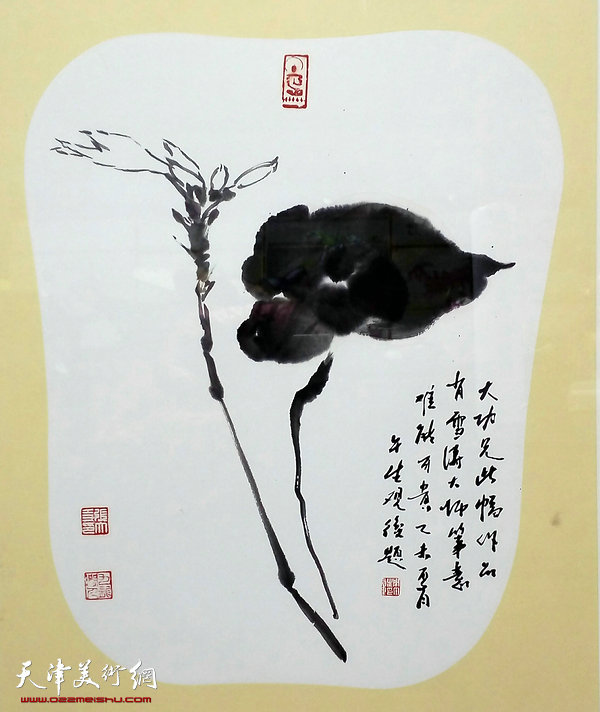 大功兄此幅作品
有雪涛大师笔意
难能可贵乙未夏月
午生观後题
天津美術網
www.022meishu.com